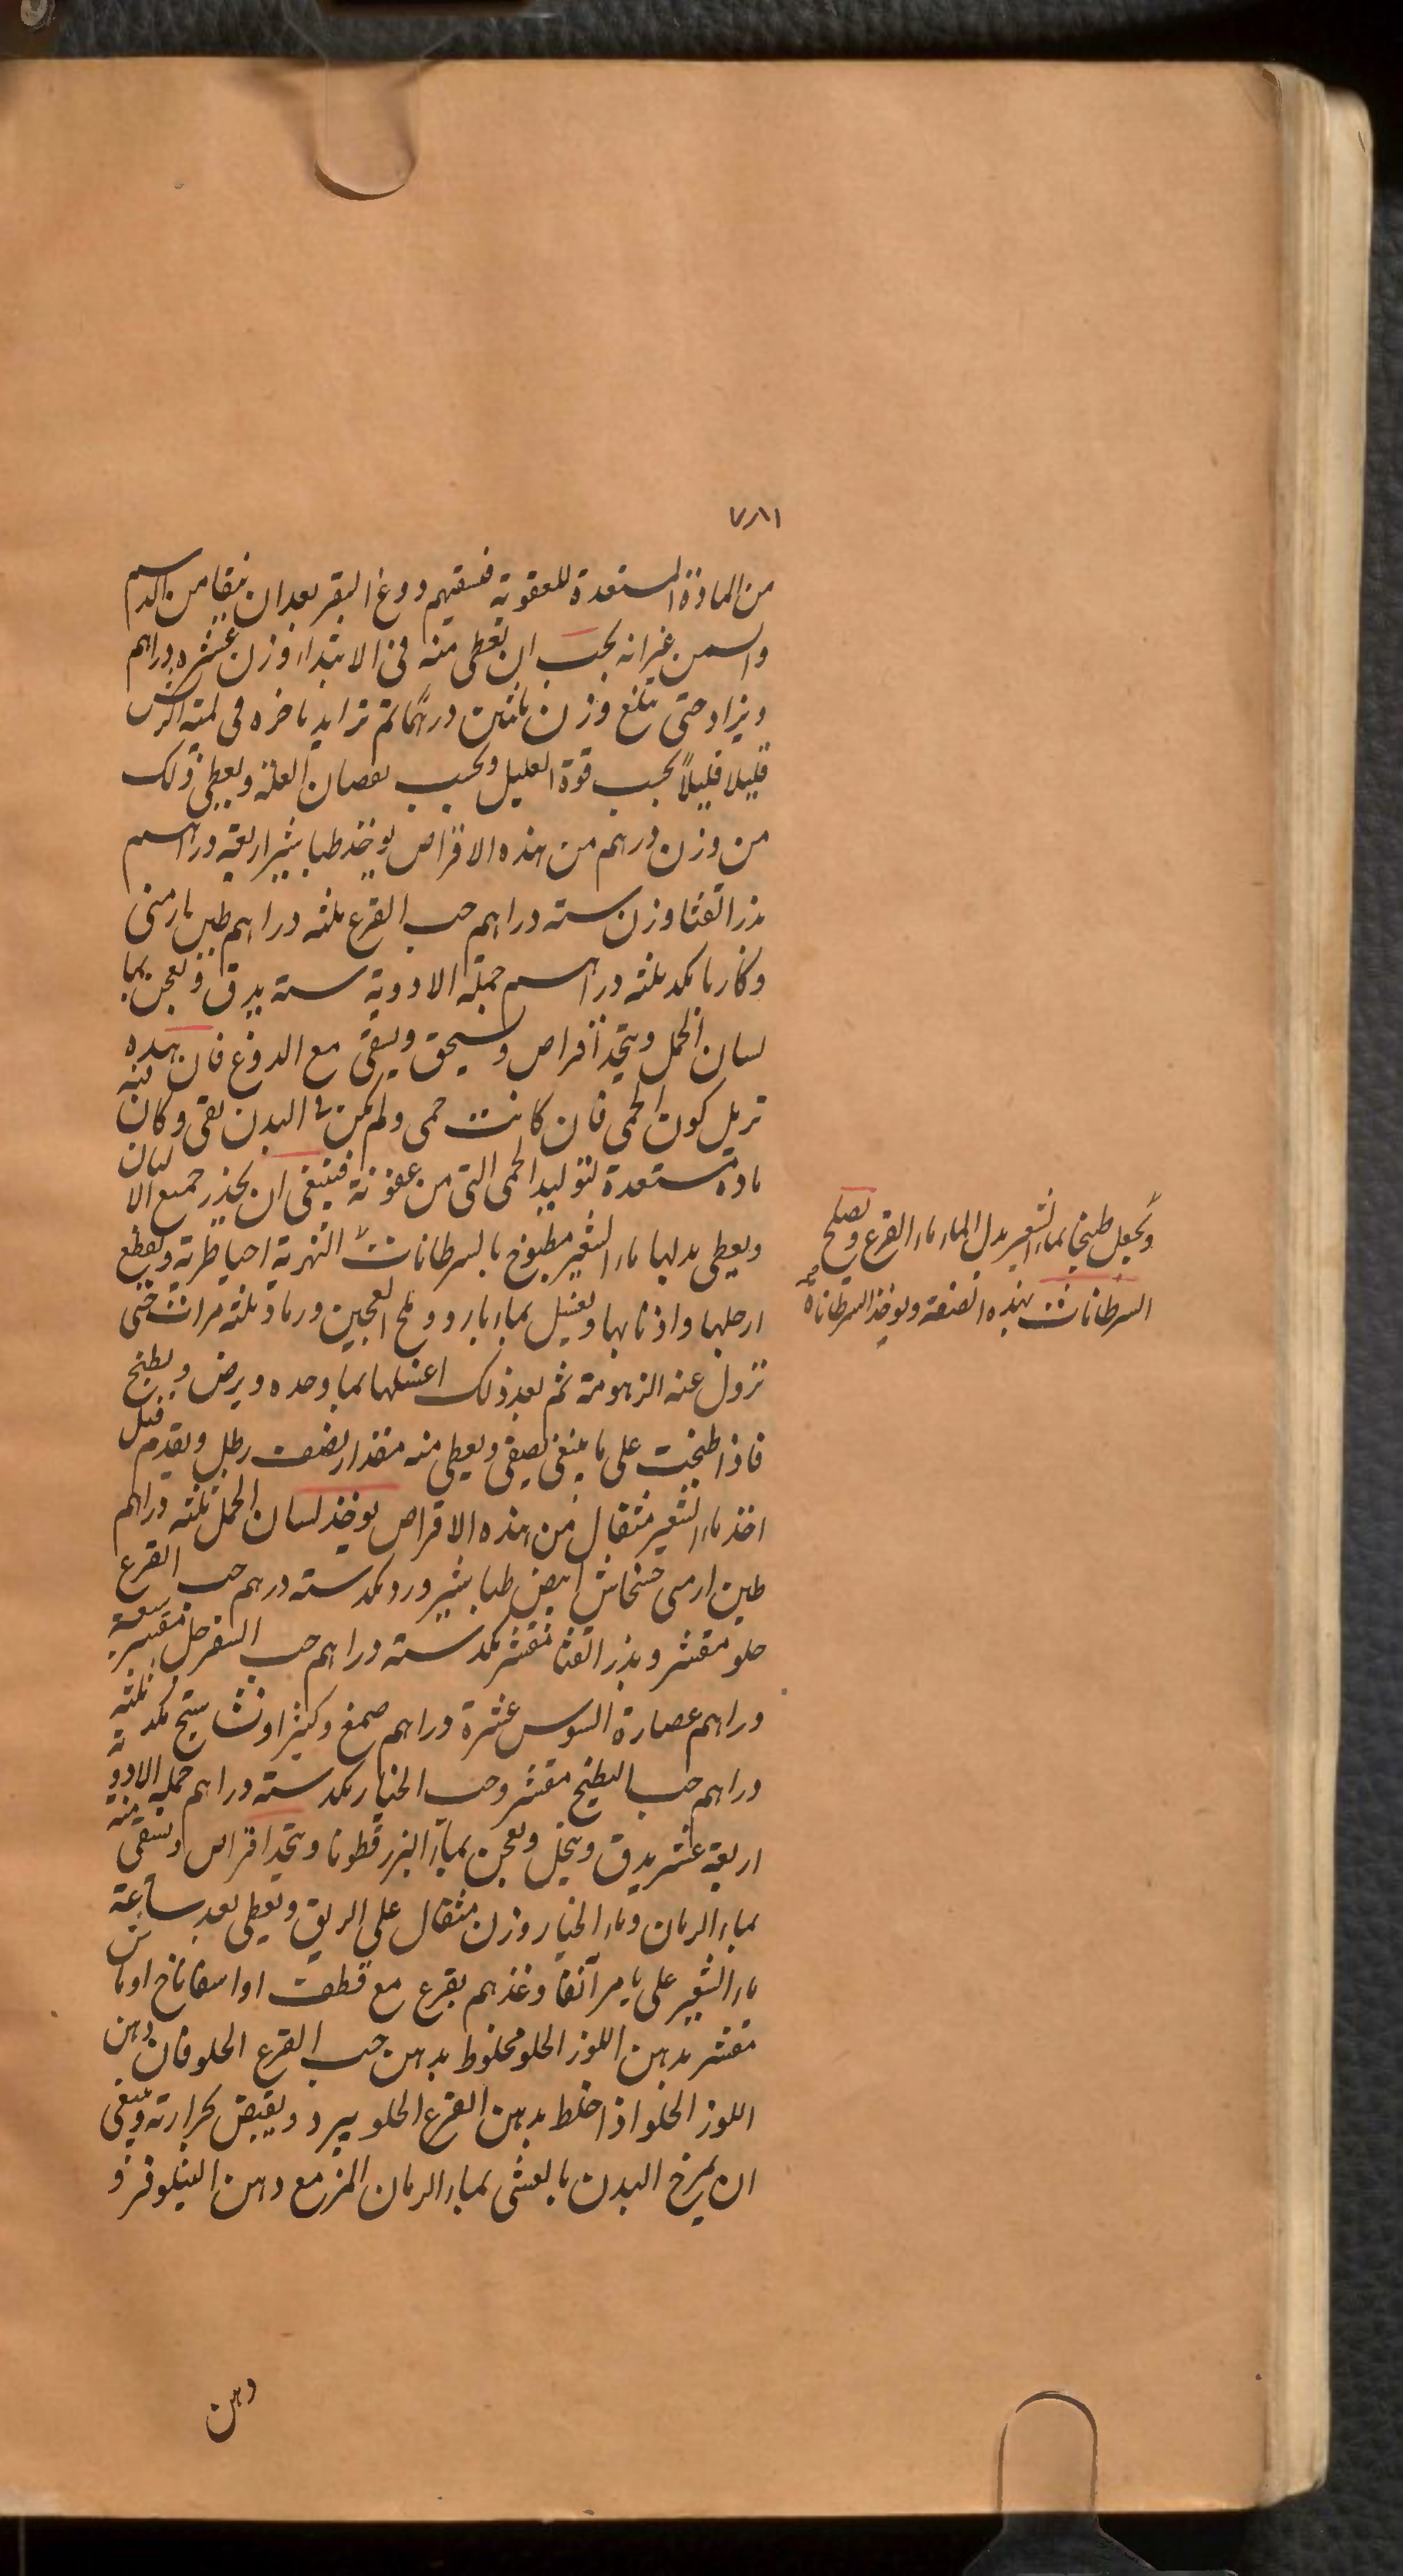 ٧٨١
من المادة المستعدة للعقوبة فنسقيهم دوغ البقر بعد ان ينقا من الدسم
والسمن غير انه يجب ان يعطى منه فى الابتداء وزن عشره دراهم
ويزاد حتى يبلغ وزن ثلثين درهما ثم تزايد باخره فى لمية القرص
قليلا قليلاً بحسب قوة العليل وبحسب نقصان العلة ويعطى ذلك
من وزن درهم من هذه الاقراص يوخذ طباشير اربعة دراهم
بذر القثا وزن سته دراهم حب القرع ثلثه دراهم طين ارمنى
وكاربا مكد ثلثه دراهم جملة الادوية سته يدق ويعجن بما
لسان الحمل ويتخذ اقراص ويسحق ويسقى مع الدوغ فان هذه
تزيل كون الحمى فان كانت حمى ولم يكن فى البدن نقى وكان فيه
مادة مستعدة لتوليد الحمى التى من عفونة فينبغى ان يحذر جميع الالبان
ويعطى بدلها ماء الشعير مطبوخ بالسرطانات النهرية احيا طرية ويقطع
ارجلها واذنابها ويغسل بماء بارد وملح العجين ورماد ثلثه مرات حتى
تزول عنه الزهومة ثم بعد ذلك اغسلها بما وحده ويرض ويطبخ
فاذا طبخت على ما ينبغى يصفى ويعطى منه مقدار نصف رطل ويقدم قبل
اخذ ماء الشعير مثقال من هذه الاقراص يوخذ لسان الحمل ثلثه دراهم
طين ارمنى خشخاش ابيض طباشير ورد مكد سته درهم حب القرع
حلو مقشر وبذر القثا مقشر مكد سته دراهم حب السفرجل مقشر سبعة
دراهم عصارة السوس عشرة دراهم صمغ وكثيرا ونشاستج مكد ثلثه
دراهم حب البطيخ مقشر وحب الخيار مكد سته دراهم جملة الادوية
اربعة عشر يدق وينخل ويعجن بماء البزرقطونا ويتخذ اقراص ويسقى منه
بماء الرمان وماء الخيار وزن مثقال على الريق ويعطى بعد ساعة
ماء الشعير على ما مر آنفا وغذهم بقرع مع قطف او اسفاناخ او ماش
مقشر بدهن اللوز الحلو مخلوط بدهن حب القرع الحلو فان دهن
اللوز الحلو اذا خلط بدهن القرع الحلو يبرد ويقبض بحرارته وينبغى
ان يمرخ البدن بالعشى بماء الرمان المز مع دهن النيلوفر و
دهن
ويجعل طبخها بماء الشعير بدل الماء ماء القرع ويصلح
السرطانات بهذه الصنعة ويوخذ السرطانات صح